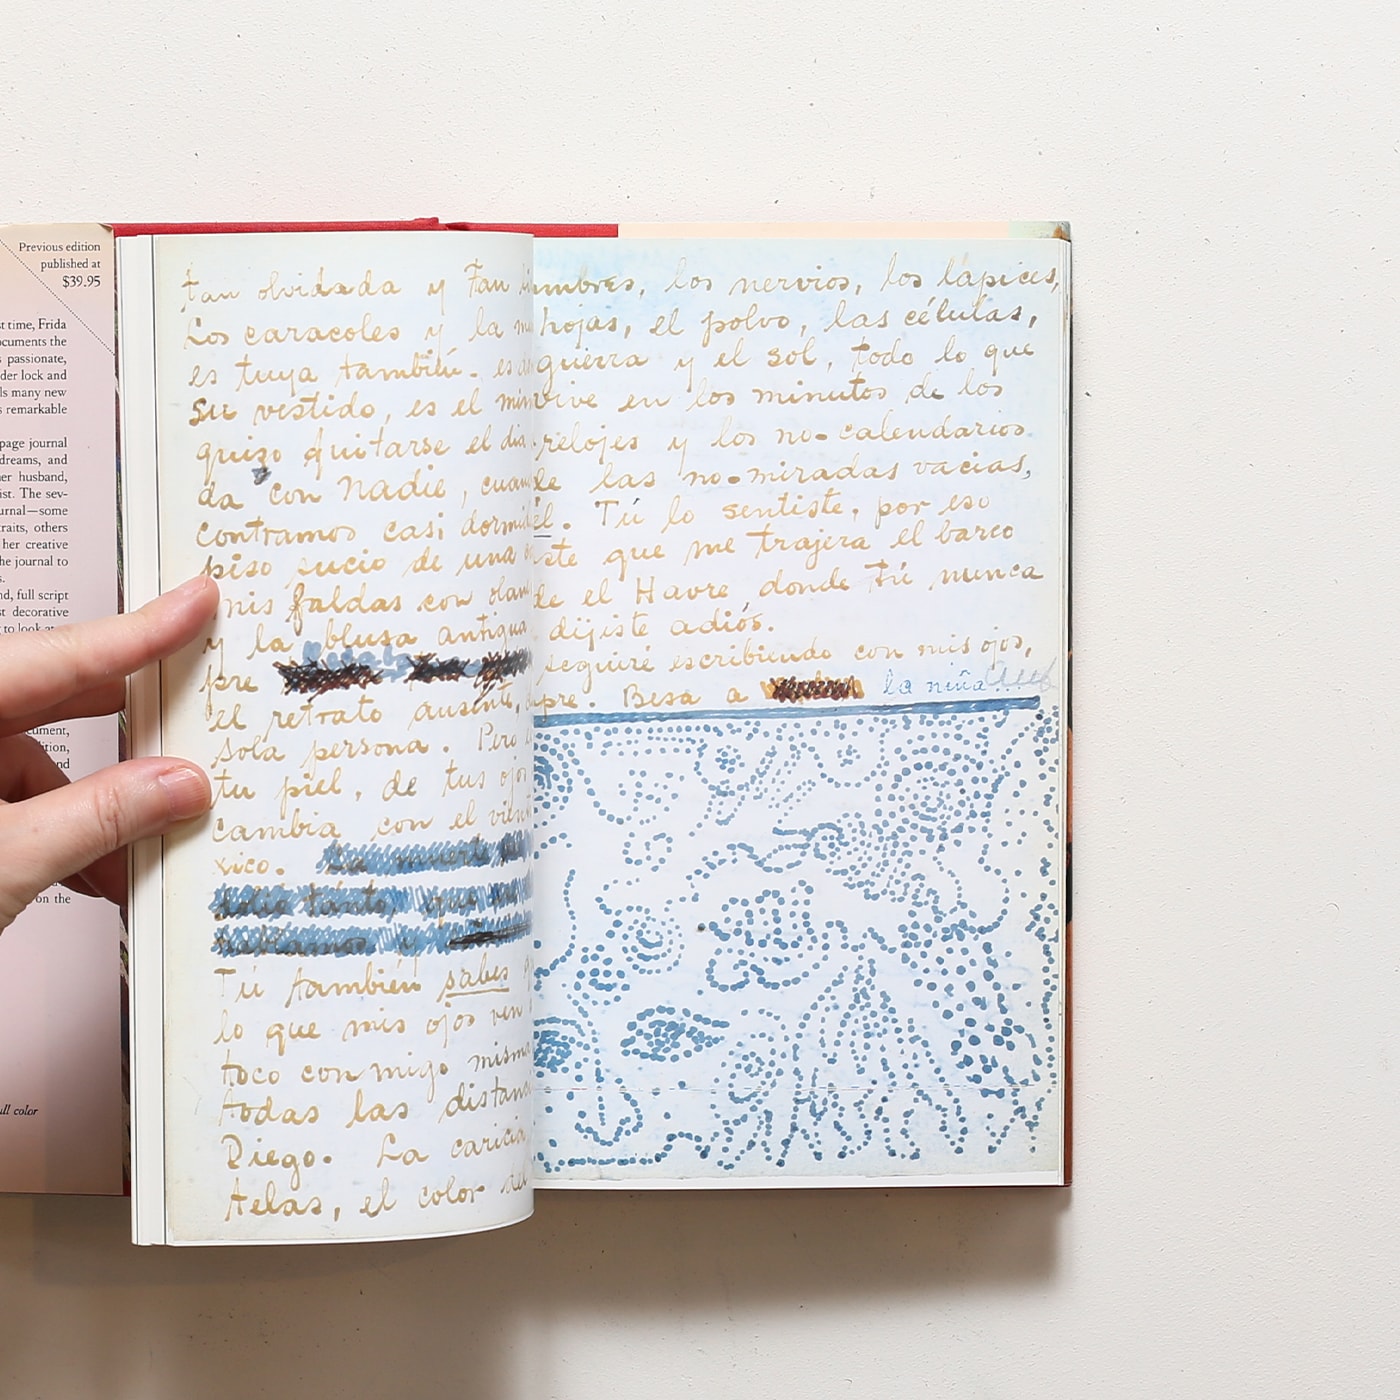 Previous edition
published at
$39.95
st time, Frida
ocuments the
s passionate,
der lock and
ls many new
s remarkable
page journal
dreams, and
er husband,
ist. The sev-
urnal—some
traits, others
her creative
he journal to
s.
nd, full script
st decorative
to look at
cument,
ition,
nd
on the
ull color
tan olvidada y tan
Los caracoles y la
es tuya también. es
su vestido, es el
quizo quitarse el dia
da con nadie, cuan
contramos casi dormi
piso sucio de una
mis faldas con olan
y la blusa antigua
pre
el retrato ausente,
sola persona. Pero
tu piel, de tus ojos
cambia con el vien
xico. La muerte
dolió tánto, que
hablamos y
Tú también sabes
lo que mis ojos ven
toco con migo misma
todas las distan
Diego. La caricia
telas, el color del
umbres, los nervios, los lápices,
hojas, el polvo, las células,
guerra y el sol, todo lo que
vive en los minutos de los
relojes y los no-calendarios
de las no-miradas vacias,
él. Tú lo sentiste, por eso
iste que me trajera el barco
de el Havre donde tú nunca
dijiste adiós.
seguiré escribiendo con mis ojos,
mpre. Besa a la niña...